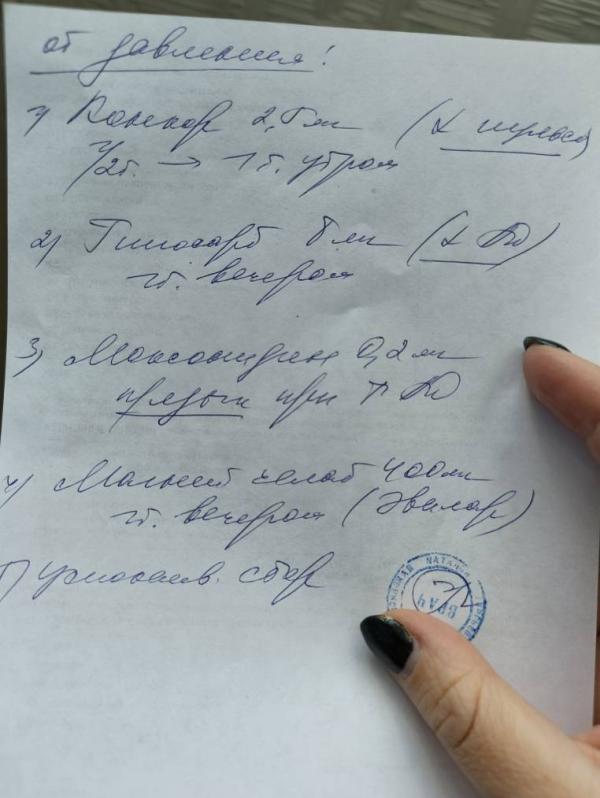 от давления!
1) Конкор 2,5 мг (↓ пульса)
1/2т. → 1т. утром
2) Гипосарт 8 мг (↓ АД)
1т. вечером
3) Моксонидин 0,2 мг
при ↑ АД
4) Магний хелат 400 мг
1т. вечером (Эвалар)
5) Успокаив. сбор
ВРАЧ